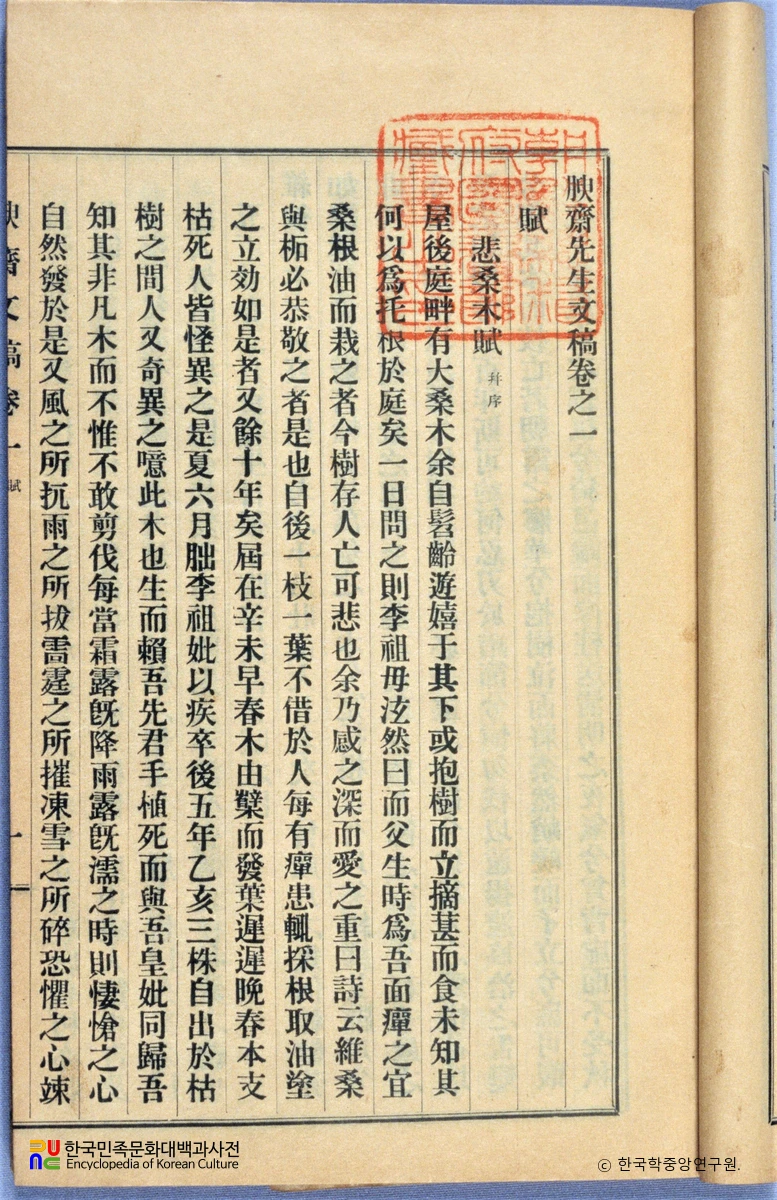 腴齋先生文稿卷之一
賦
悲桑木賦 幷序
屋後庭畔有大桑木余自髫齡遊嬉于其下或抱樹而立摘葚而食未知其
何以爲托根於庭矣一日問之則李祖母泫然曰而父生時爲吾面癉之宜
桑根油而栽之者今樹存人亡可悲也余乃感之深而愛之重曰詩云維桑
與柘必恭敬之者是也自後一枝一葉不借於人每有癉患輒採根取油塗
之立効如是者又餘十年矣屆在辛未早春木由櫱而發葉遲遲晩春本支
枯死人皆怪異之是夏六月朏李祖妣以疾卒後五年乙亥三株自出於枯
樹之間人又奇異之噫此木也生而賴吾先君手植死而與吾皇妣同歸吾
知其非凡木而不惟不敢剪伐每當霜露旣降雨露旣濡之時則悽愴之心
自然發於是又風之所抗雨之所拔雷霆之所摧凍雪之所碎恐懼之心竦
腴齋文稿卷一 賦 一
한국민족문화대백과사전
Encyclopedia of Korean Culture
ⓒ 한국학중앙연구원.